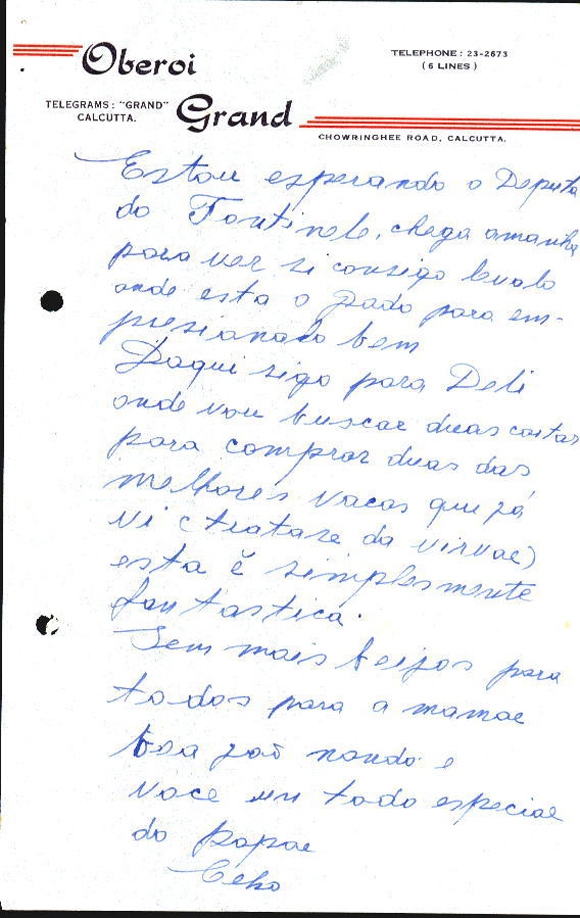 Oberoi
Grand
TELEPHONE : 23-2673
( 6 LINES )
TELEGRAMS : "GRAND"
CALCUTTA.
CHOWRINGHEE ROAD, CALCUTTA.
Estou esperando o Deputa
do Tourinho, chega amanha
para ver si consigo levalo
onde esta o gado para em-
presionalo bem
Daqui sigo para Deli
onde vou buscar duas cartas
para comprar duas das
melhores vacas que já
vi (tratase da virvae)
esta é simplesmente
fantastica.
Sem mais beijos para
todos para a mamae
joaõ nando e
voce um todo especial
do papae
Celso